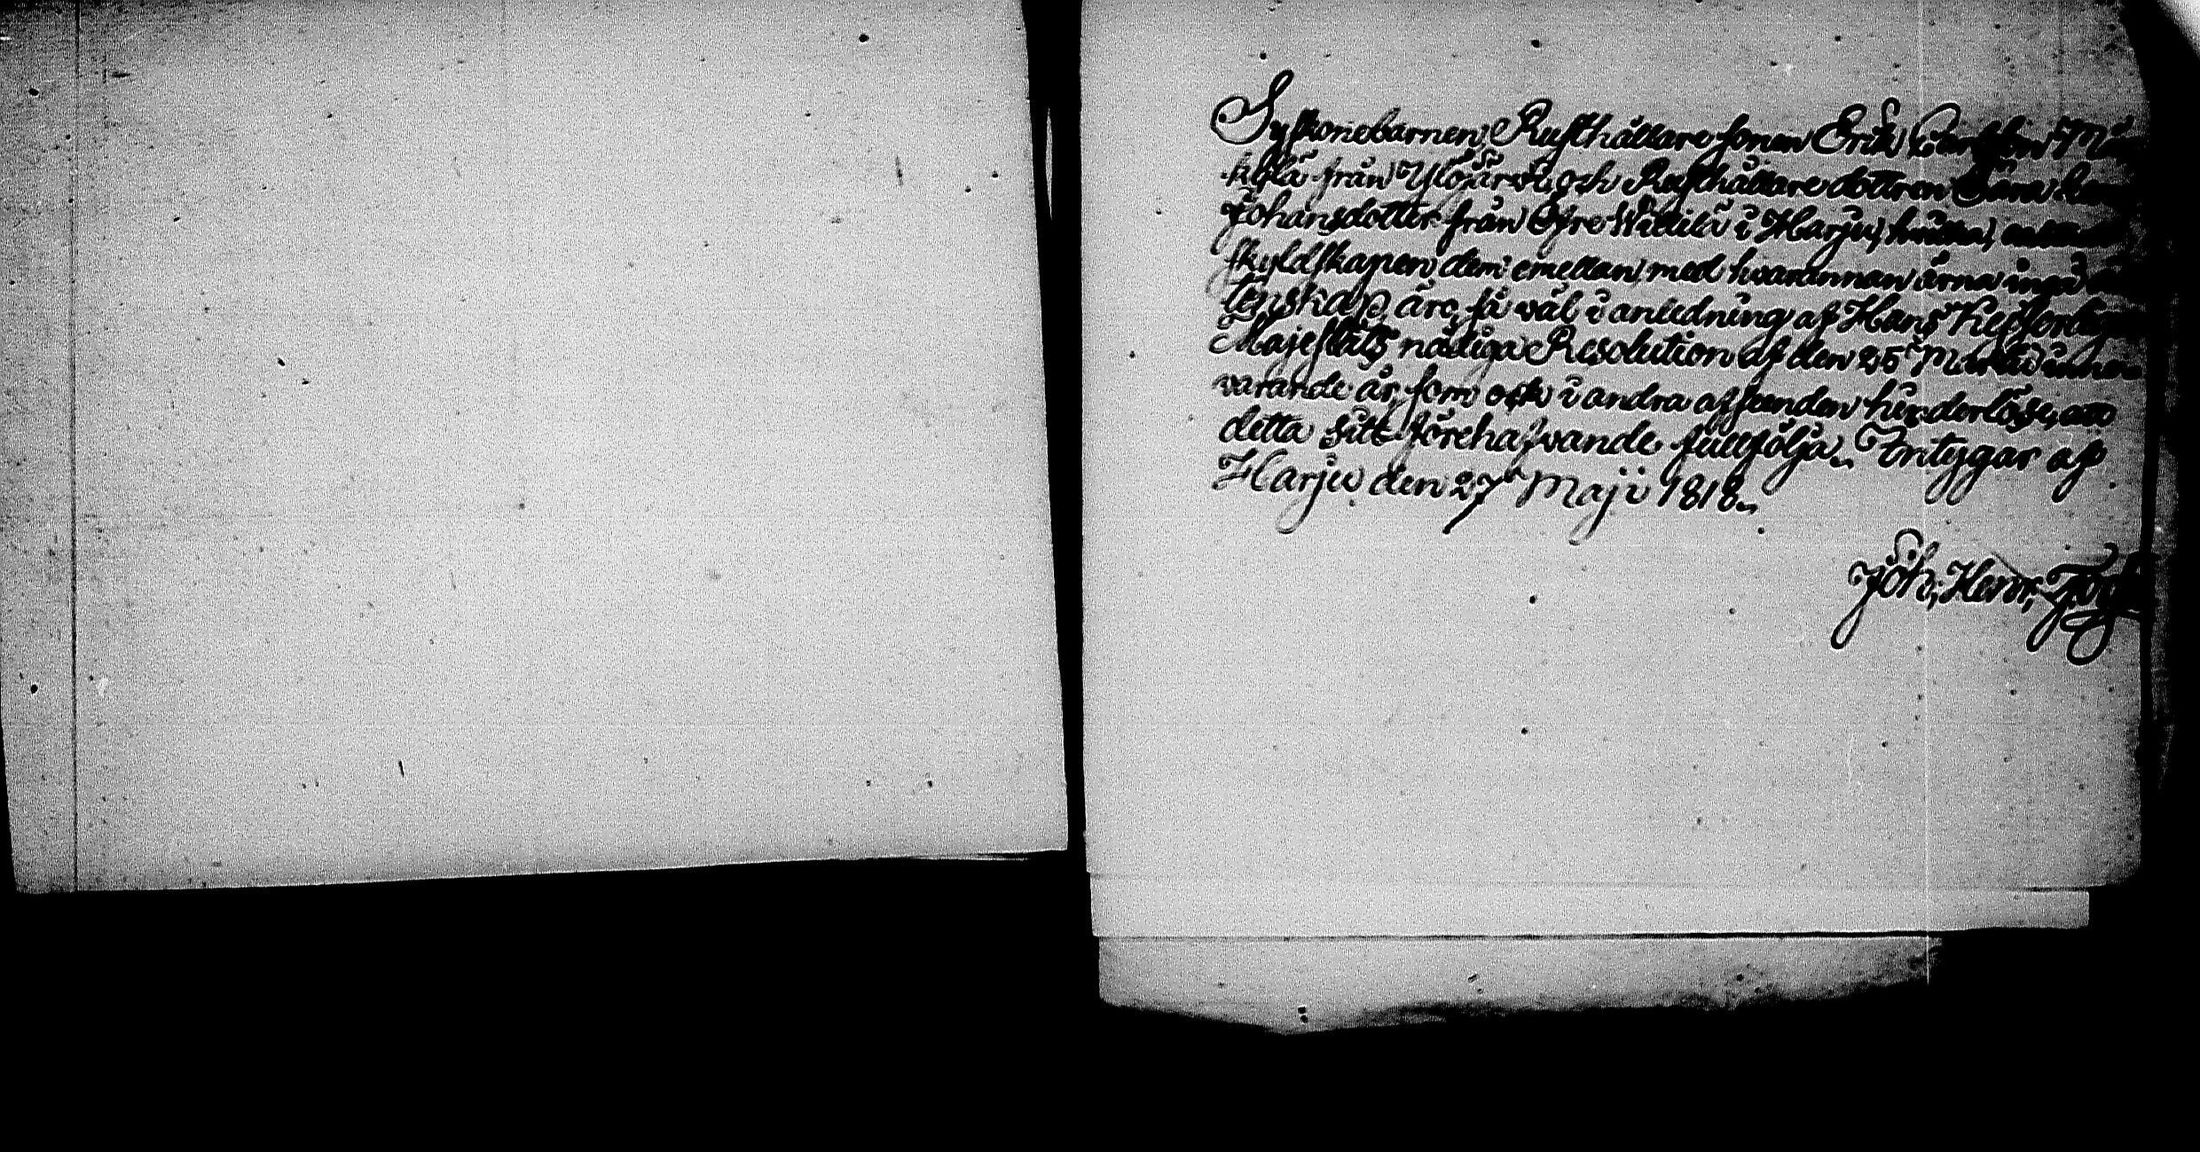 Syskonebarnen, Rusthållare sonen Erik
kylä från Ylöjärvi, och Rusthållare dottren
Johansdotter från Öfre Willilä i Harju, hvilka,
skyldskapen dem emellan, med hvarannan ärna ingå
tenskap, äro, så väl i anledning af Hans Kejserliga
Majestäts nådiga Resolution af den 25 Martii inne
varande år, som ock i andra afseenden hinderlöse, att
detta sitt förehafvande fullfölja. Intygar af
Harju den 27 Maji 1818.
Joh,